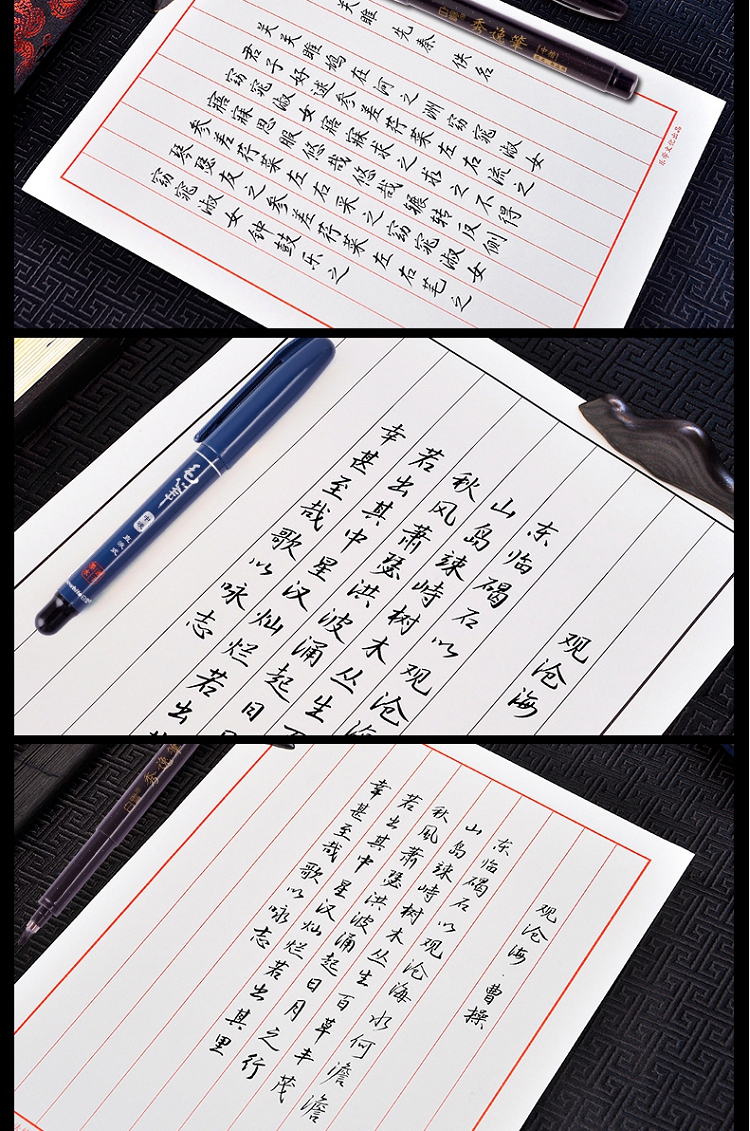 关雎 先秦 佚名
关关雎鸠在河之洲窈窕淑女
君子好逑参差荇菜左右流之
窈窕淑女寤寐求之求之不得
寤寐思服悠哉悠哉辗转反侧
参差荇菜左右采之窈窕淑女
琴瑟友之参差荇菜左右芼之
窈窕淑女钟鼓乐之
白雪 秀逸筆 中楷
毛筆 中楷
观沧海
东临碣石以观沧海
山岛竦峙树木丛生
秋风萧瑟洪波涌起日
若出其中星汉灿烂若出
幸甚至哉歌以咏志
秀逸筆
观沧海·曹操
东临碣石以观沧海水何澹澹
山岛竦峙树木丛生百草丰茂
秋风萧瑟洪波涌起日月之行
若出其中星汉灿烂若出其里
幸甚至哉歌以咏志